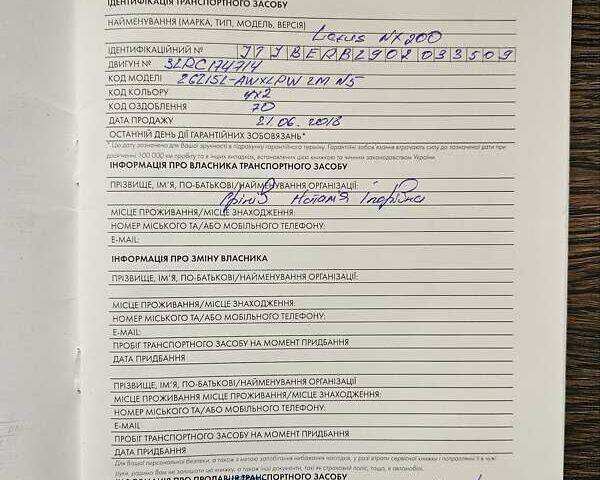 ІДЕНТИФІКАЦІЯ ТРАНСПОРТНОГО ЗАСОБУ
НАЙМЕНУВАННЯ (МАРКА, ТИП, МОДЕЛЬ, ВЕРСІЯ)
Lexus NX 200
ІДЕНТИФІКАЦІЙНИЙ № JTJBERBZ902033509
ДВИГУН № 3ZRC174714
КОД МОДЕЛІ
КОД КОЛЬОРУ 4x2
КОД ОЗДОБЛЕННЯ 70
ДАТА ПРОДАЖУ 21.06.2018
ОСТАННІЙ ДЕНЬ ДІЇ ГАРАНТІЙНИХ ЗОБОВ'ЯЗАНЬ*
* Цю дату зазначено для Вашої зручності в підрахунку гарантійного терміну. Гарантійні зобов'язання втрачають силу до зазначеної дати при
досягненні 100 000 км пробігу та в інших випадках, встановлених цією книжкою та чинним законодавством України.
ІНФОРМАЦІЯ ПРО ВЛАСНИКА ТРАНСПОРТНОГО ЗАСОБУ
ПРІЗВИЩЕ, ІМ'Я, ПО-БАТЬКОВІ/НАЙМЕНУВАННЯ ОРГАНІЗАЦІЇ:
Наталія Ігорівна
МІСЦЕ ПРОЖИВАННЯ/МІСЦЕ ЗНАХОДЖЕННЯ:
НОМЕР МІСЬКОГО ТА/АБО МОБІЛЬНОГО ТЕЛЕФОНУ:
E-MAIL:
ІНФОРМАЦІЯ ПРО ЗМІНУ ВЛАСНИКА
ПРІЗВИЩЕ, ІМ'Я, ПО-БАТЬКОВІ/НАЙМЕНУВАННЯ ОРГАНІЗАЦІЇ:
МІСЦЕ ПРОЖИВАННЯ/МІСЦЕ ЗНАХОДЖЕННЯ:
НОМЕР МІСЬКОГО ТА/АБО МОБІЛЬНОГО ТЕЛЕФОНУ:
E-MAIL:
ПРОБІГ ТРАНСПОРТНОГО ЗАСОБУ НА МОМЕНТ ПРИДБАННЯ
ДАТА ПРИДБАННЯ
ПРІЗВИЩЕ, ІМ'Я, ПО-БАТЬКОВІ/НАЙМЕНУВАННЯ ОРГАНІЗАЦІЇ
МІСЦЕ ПРОЖИВАННЯ МІСЦЕ ПРОЖИВАННЯ/МІСЦЕ ЗНАХОДЖЕННЯ:
НОМЕР МІСЬКОГО ТА/АБО МОБІЛЬНОГО ТЕЛЕФОНУ:
E-MAIL
ПРОБІГ ТРАНСПОРТНОГО ЗАСОБУ НА МОМЕНТ ПРИДБАННЯ
ДАТА ПРИДБАННЯ
Для Вашої персональної безпеки, а також з метою запобігання небажаних наслідків, у разі втрати сервісної книжки і потрапляння її в чужі
руки, радимо Вам не залишати цю книжку, а також інші документи, такі як страховий поліс, тощо, в автомобілі.
ІНФОРМАЦІЯ ПРО ПРОДАВЦЯ ТРАНСПОРТНОГО ЗАСОБУ